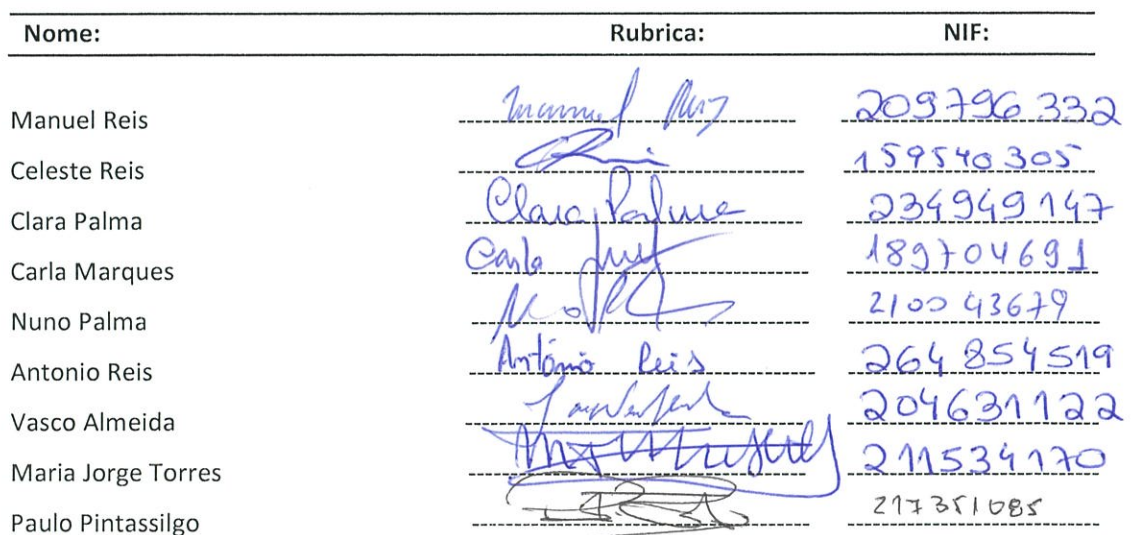 Nome: Rubrica: NIF:
Manuel Reis Manuel Reis 209796332
Celeste Reis 159540305
Clara Palma Clara Palma 234949147
Carla Marques Carla 189704691
Nuno Palma 210043679
Antonio Reis António Reis 264 854519
Vasco Almeida 204631122
Maria Jorge Torres 211534170
Paulo Pintassilgo 217351085